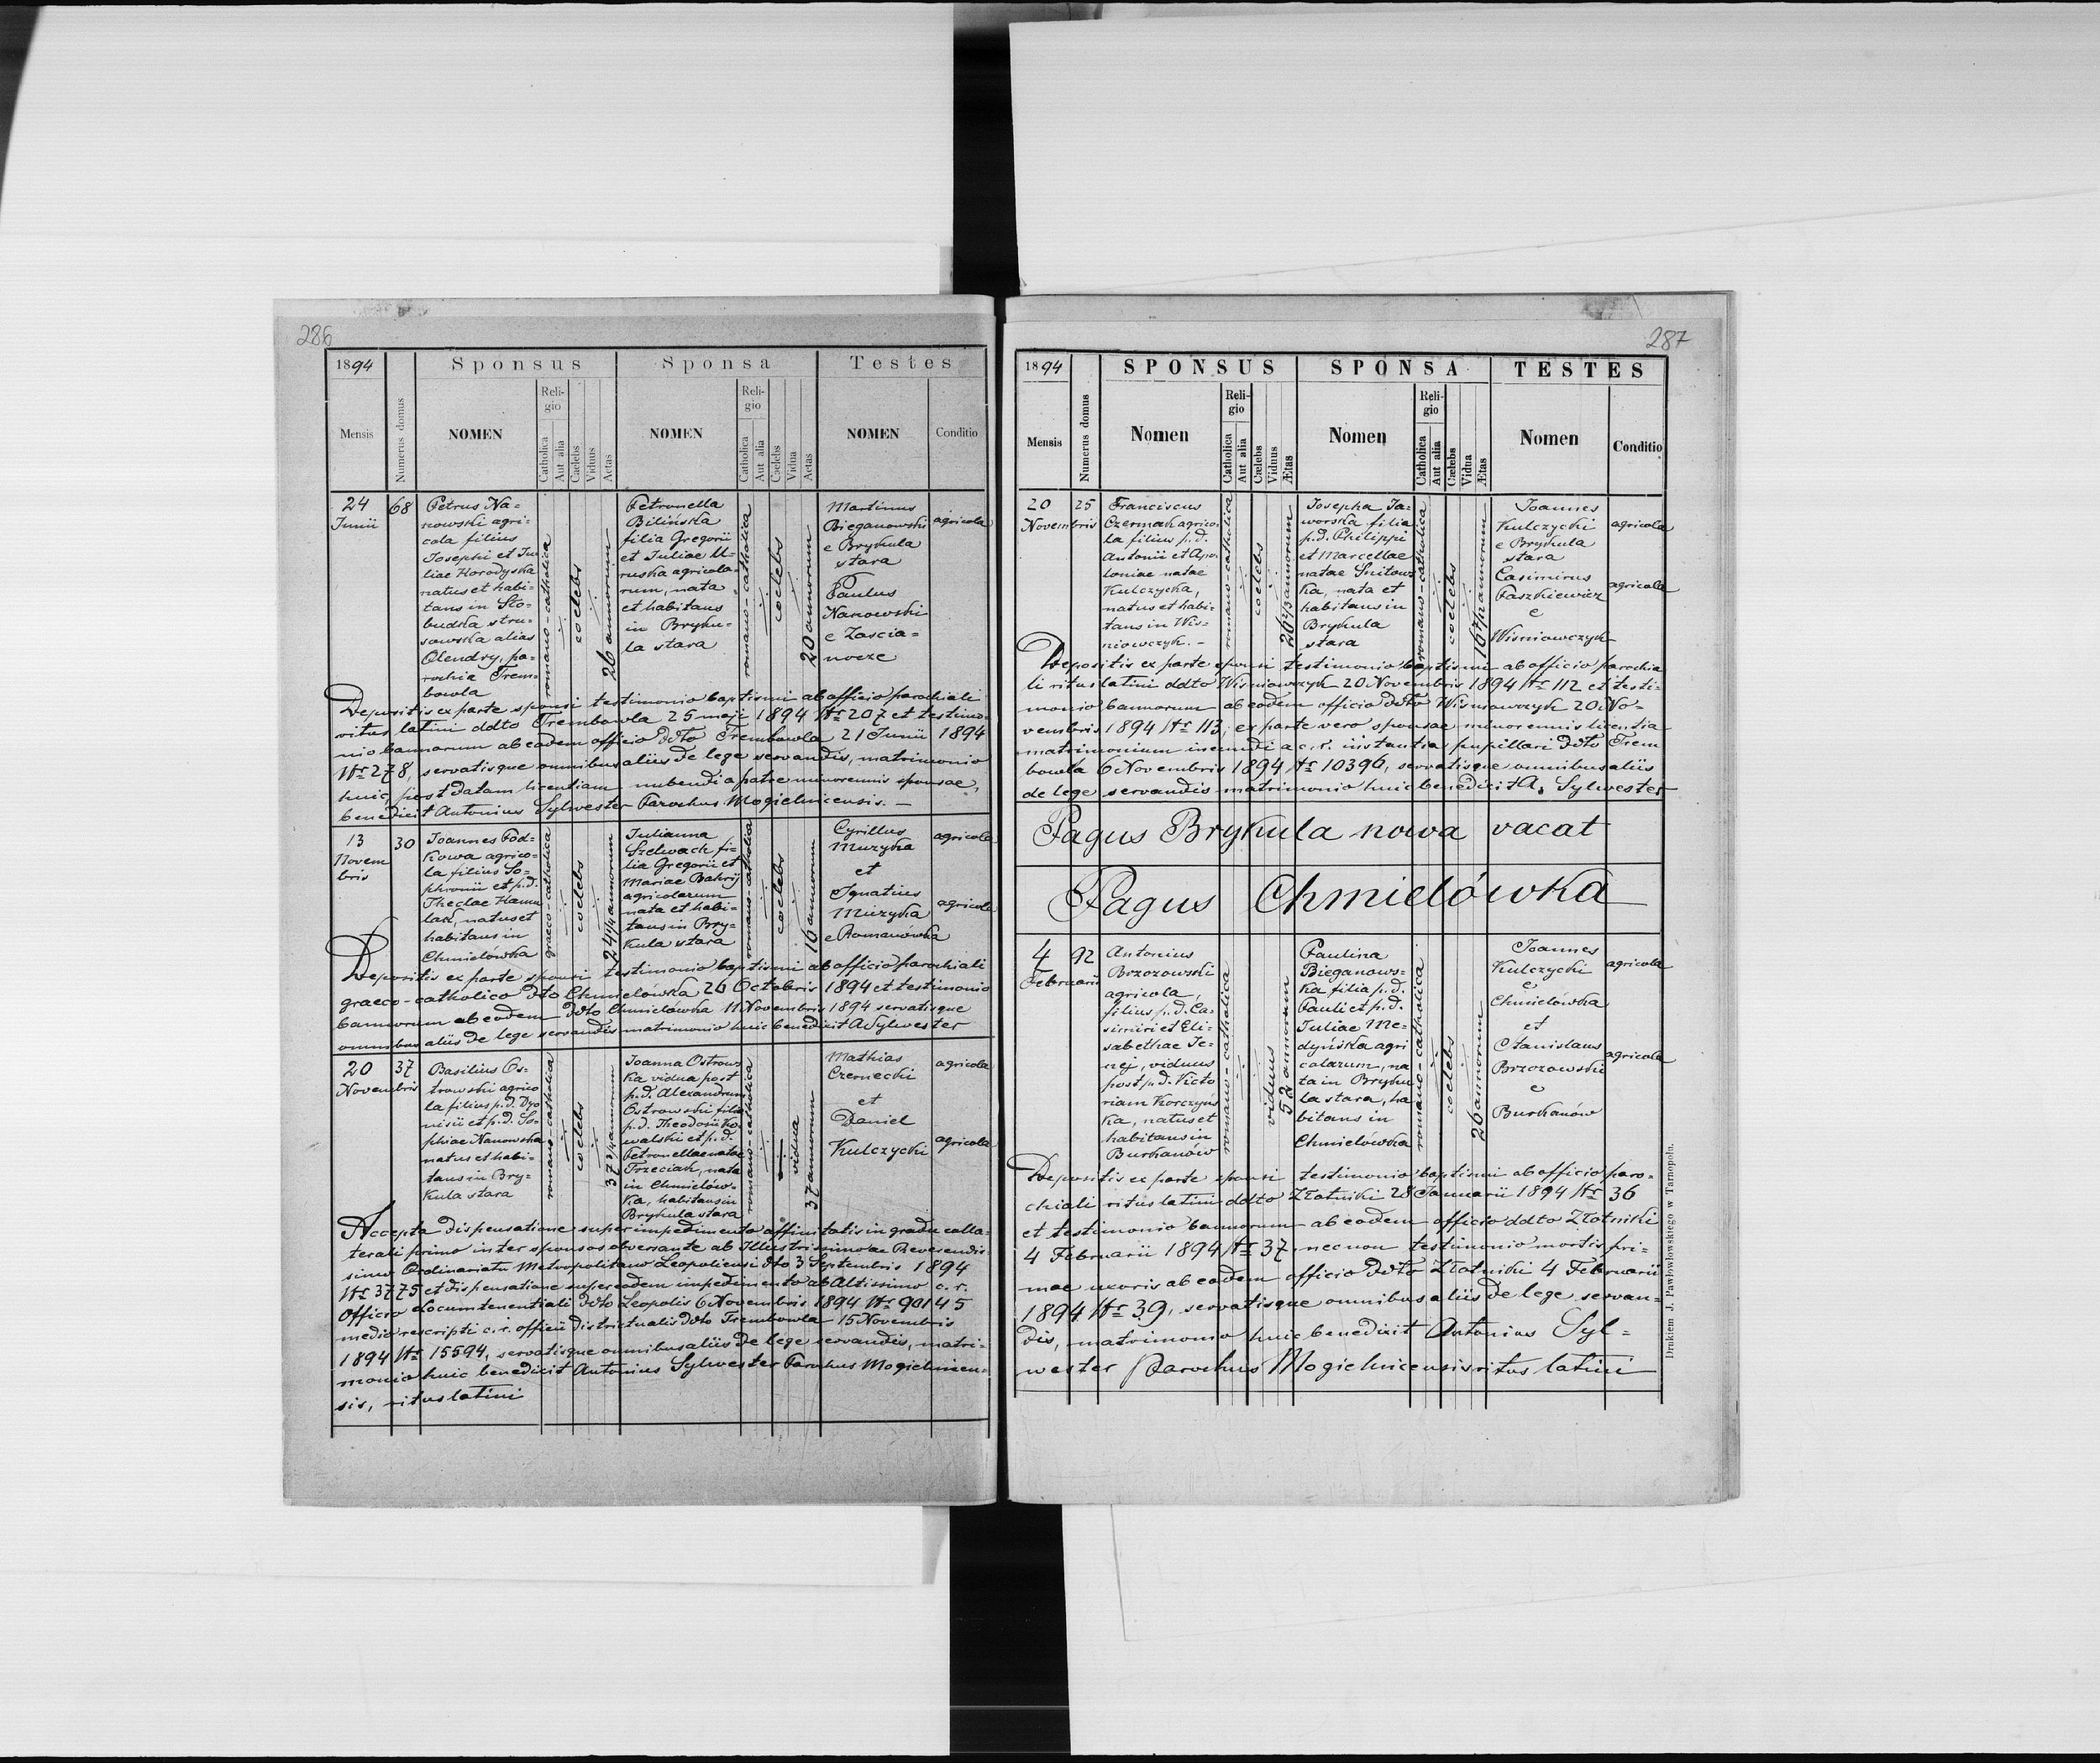 286
1894
Sponsus
Sponsa
Testes
Mensis
Numerus domus
NOMEN
Reli-
gio
Catholica
Aut alia
Cælebs
Viduus
Aetas
NOMEN
Reli-
gio
Catholica
Aut alia
Cælebs
Vidua
Aetas
NOMEN
Conditio
24
Junii
68
Petrus Na-
nowski agri-
cola filius
Josephi et Ju
liae Horodyska
natus et habi-
tans in Sło-
budka stru-
sowska alias
Olendry, pa-
rochia Trem-
bowla
romano-catholica
coelebs
26 annorum
Petronella
Bilińska
filia Gregorii
et Juliae U-
ruska agricola-
rum, nata
et habitans
in Bryku-
la stara
romano-catholica
coelebs
20 annorum
Martinus
Bieganowski
e Brykula
stara
Paulus
Nanowski
e Zascia-
nocze
agricola
Depositis ex parte sponsi testimonio baptismi ab officio parochiali
ritus latini ddto Trembowla 25 maji 1894 Nr 207 et testimo-
nio bannorum ab eodem officio ddto Trembowla 21 Junii 1894
Nr 278, servatisque omnibus aliis de lege servandis, matrimonio
huic post datam licentiam nubendi a patre minorennis sponsae,
benedicit Antonius Sylwester Parochus Mogielnicensis. –
13
Novem
bris
30
Joannes Pod-
kowa agrico-
la filius So-
phronii et p.d.
Theclae Hanu
lak, natus et
habitans in
Chmielówka
graeco-catholica
coelebs
24 1/4 annorum
Julianna
Szelwach fi-
lia Gregorii et
Mariae Bakrij
agricolarum
nata et habi-
tans in Bry-
kula stara
romano-catholica
coelebs
16 annorum
Cyrillus
Muzyka
et
Ignatius
Muzyka
e Romanówka
agricola
agricola
Depositis ex parte sponsi testimonio baptismi ab officio parochiali
graeco-catholico ddto Chmielówka 20 Octobris 1894 et testimonio
bannorum ab eodem ddto Chmielówka 11 Novembris 1894 servatisque
omnibus aliis de lege servandis matrimonio huic benedicit A Sylwester
20
Novembris
37
Basilius Os-
trowski agrico
la filius p.d. Dyo
nisii et p.d. So-
phiae Nanowska
natus et habi-
tans in Bry-
kula stara
romano-catholica
coelebs
37 3/4 annorum
Joanna Ostrows
ka vidua post
p.d. Alexandrum
Ostrowski filia
p.d. Theodosii Ko
walski et p.d.
Petronellae natae
Trzeciak, nata
in Chmielów-
ka, habitans in
Brykula stara
romano-catholica
vidua
37 annorum
Mathias
Czernecki
et
Daniel
Kulczycki
agricola
agricola
Accepta dispensatione super impedimento affinitatis in gradu colla-
terali primo inter sponsos obversante ab Illustrissimo ac Reverendis
simo Ordinariatu Metropolitano Leopoliensi ddto 3 Septembris 1894
Nr 3775 et dispensatione super eodem impedimento ab Altissimo c. r.
Officio Locumtenentiali ddto Leopolis 6 Novembris 1894 Nr 90145
medio rescripti c. r. officii districtualis ddto Trembowla 15 Novembris
1894 Nr 15594, servatisque omnibus aliis de lege servandis, matri-
monio huic benedicit Antonius Sylwester Parochus Mogielnicen-
sis, ritus latini
287
1894
SPONSUS
SPONSA
TESTES
Mensis
Numerus domus
Nomen
Reli-
gio
Catholica
Aut alia
Cælebs
Viduus
Ætas
Nomen
Reli-
gio
Catholica
Aut alia
Cælebs
Vidua
Ætas
Nomen
Conditio
20
Novembris
25
Franciscus
Czermak agrico-
la filius p.d.
Antonii et Apo-
loniae natae
Kulczycka,
natus et habi-
tans in Wis-
niowczyk. –
romano-catholica
coelebs
annorum
Josepha Ja-
worska filia
p.d. Philippi
et Marcellae
natae Snitows
ka, nata et
habitans in
Brykula
stara
romano-catholica
coelebs
annorum
Joannes
Kulczycki
e Brykula
stara
Casimirus
Paszkiewicz
e
Wisniowczyk
agricola
agricola
Depositis ex parte sponsi testimonio baptismi ab officio parochia
li ritus latini ddto Wisniowczyk 20 Novembris 1894 Nr 112 et testi-
monio bannorum ab eodem officio ddto Wisniowczyk 20 No-
vembris 1894 Nr 113; ex parte vero sponsae minorennis licentia
matrimonium ineundi a c. r. instantia pupillari ddto Trem
bowla 6 Novembris 1894 Nr 10396, servatisque omnibus aliis
de lege servandis matrimonio huic benedicit A. Sylwester
Pagus Brykula nowa vacat
Pagus Chmielówka
4
Februarii
92
Antonius
Brzozowski
agricola,
filius p.d. Ca-
simiri et Eli-
sabethae Je-
nej, viduus
post p.d. Victo
riam Korczyńs
ka, natus et
habitans in
Burkanów
romano-catholica
viduus
52 annorum
Paulina
Bieganows-
ka filia p.d.
Pauli et p.d.
Juliae Me-
dyńska agri
colarum, na
ta in Bryku
la stara, ha
bitans in
Chmielówka
romano-catholica
coelebs
26 annorum
Joannes
Kulczycki
e
Chmielówka
et
Stanislaus
Brzozowski
e
Burkanów
agricola
agricola
Depositis ex parte sponsi testimonio baptismi ab officio paro-
chiali ritus latini ddto Złotniki 28 Januarii 1894 Nr 36
et testimonio bannorum ab eodem officio ddto Złotniki
4 Februarii 1894 Nr 37, nec non testimonio mortis pri-
mae uxoris ab eodem officio ddto Złotniki 4 Februarii
1894 Nr 39, servatisque omnibus aliis de lege servan-
dis, matrimonio huic benedixit Antonius Syl-
wester Parochus Mogielnicensis ritus latini
Drukiem J. Pawłowskiego w Tarnopolu.